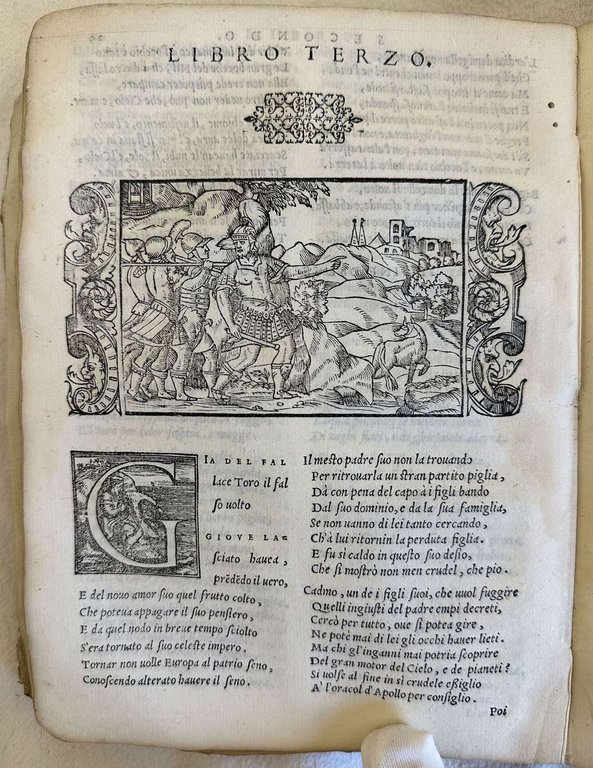 LIBRO TERZO.
GIA DEL FAL
lace Toro il fal
so uolto
GIOVE LA-
sciato hauea,
prēdēdo il uero,
E del nouo amor suo quel frutto colto,
Che poteua appagare il suo pensiero,
E da quel nodo in breue tempo sciolto
S'era tornato al suo celeste impero.
Tornar non uolle Europa al patrio seno,
Conoscendo alterato hauere il seno.
Il mesto padre suo non la trouando
Per ritrouarla un stran partito piglia,
Dà con pena del capo à i figli bando
Dal suo dominio, e da la sua famiglia,
Se non uanno di lei tanto cercando,
Ch'à lui ritornin la perduta figlia.
E fu si caldo in questo suo desio,
Che si mostrò non men crudel, che pio.
Cadmo, un de i figli suoi, che uuol fuggire
Quelli ingiusti del padre empi decreti,
Cercò per tutto, oue si potea gire,
Ne potè mai di lei gli occhi hauer lieti.
Ma chi gl'inganni mai potria scoprire
Del gran motor del Cielo, e de pianeti?
Si uolse al fine in si crudele eßiglio
A' l'oracol d'Apollo per consiglio.
Poi